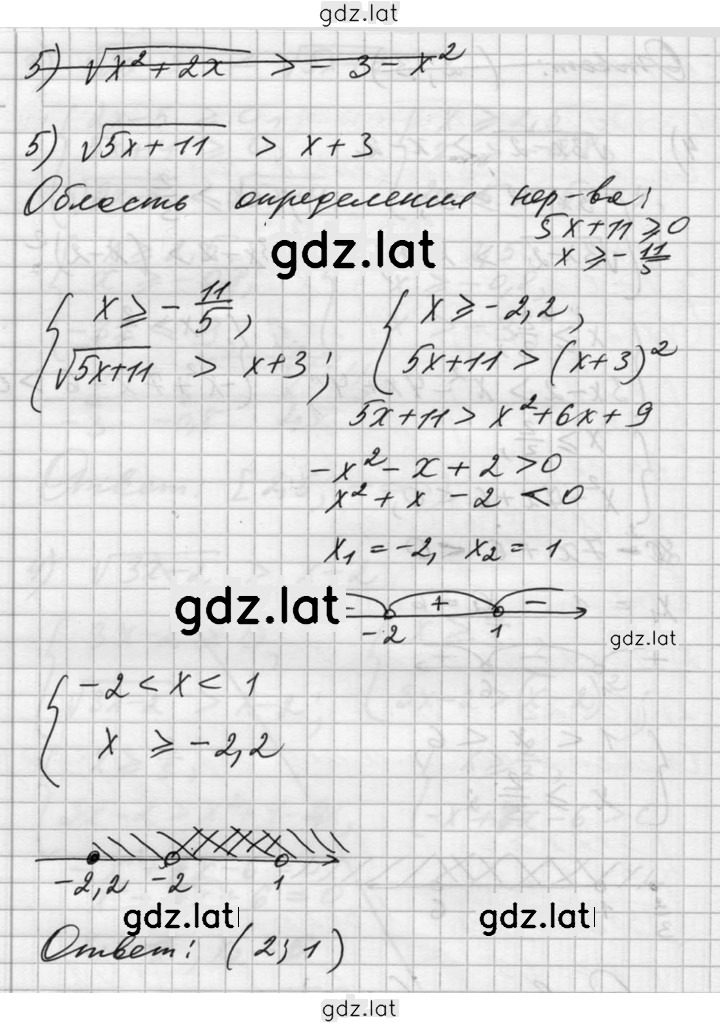 gdz.lat
5) √(x² + 2x) > - 3 - x²
5) √(5x + 11) > x + 3
Область определения нер-ва:
5x + 11 ≥ 0
x ≥ - 11/5
gdz.lat
{ x ≥ - 11/5, { x ≥ -2,2,
√(5x+11) > x+3; 5x+11 > (x+3)²
5x + 11 > x² + 6x + 9
-x² - x + 2 > 0
x² + x - 2 < 0
x₁ = -2, x₂ = 1
gdz.lat
- + -
-2 1
gdz.lat
{ -2 < x < 1
x ≥ -2,2
-2,2 -2 1
gdz.lat gdz.lat
Ответ: (2; 1)
gdz.lat